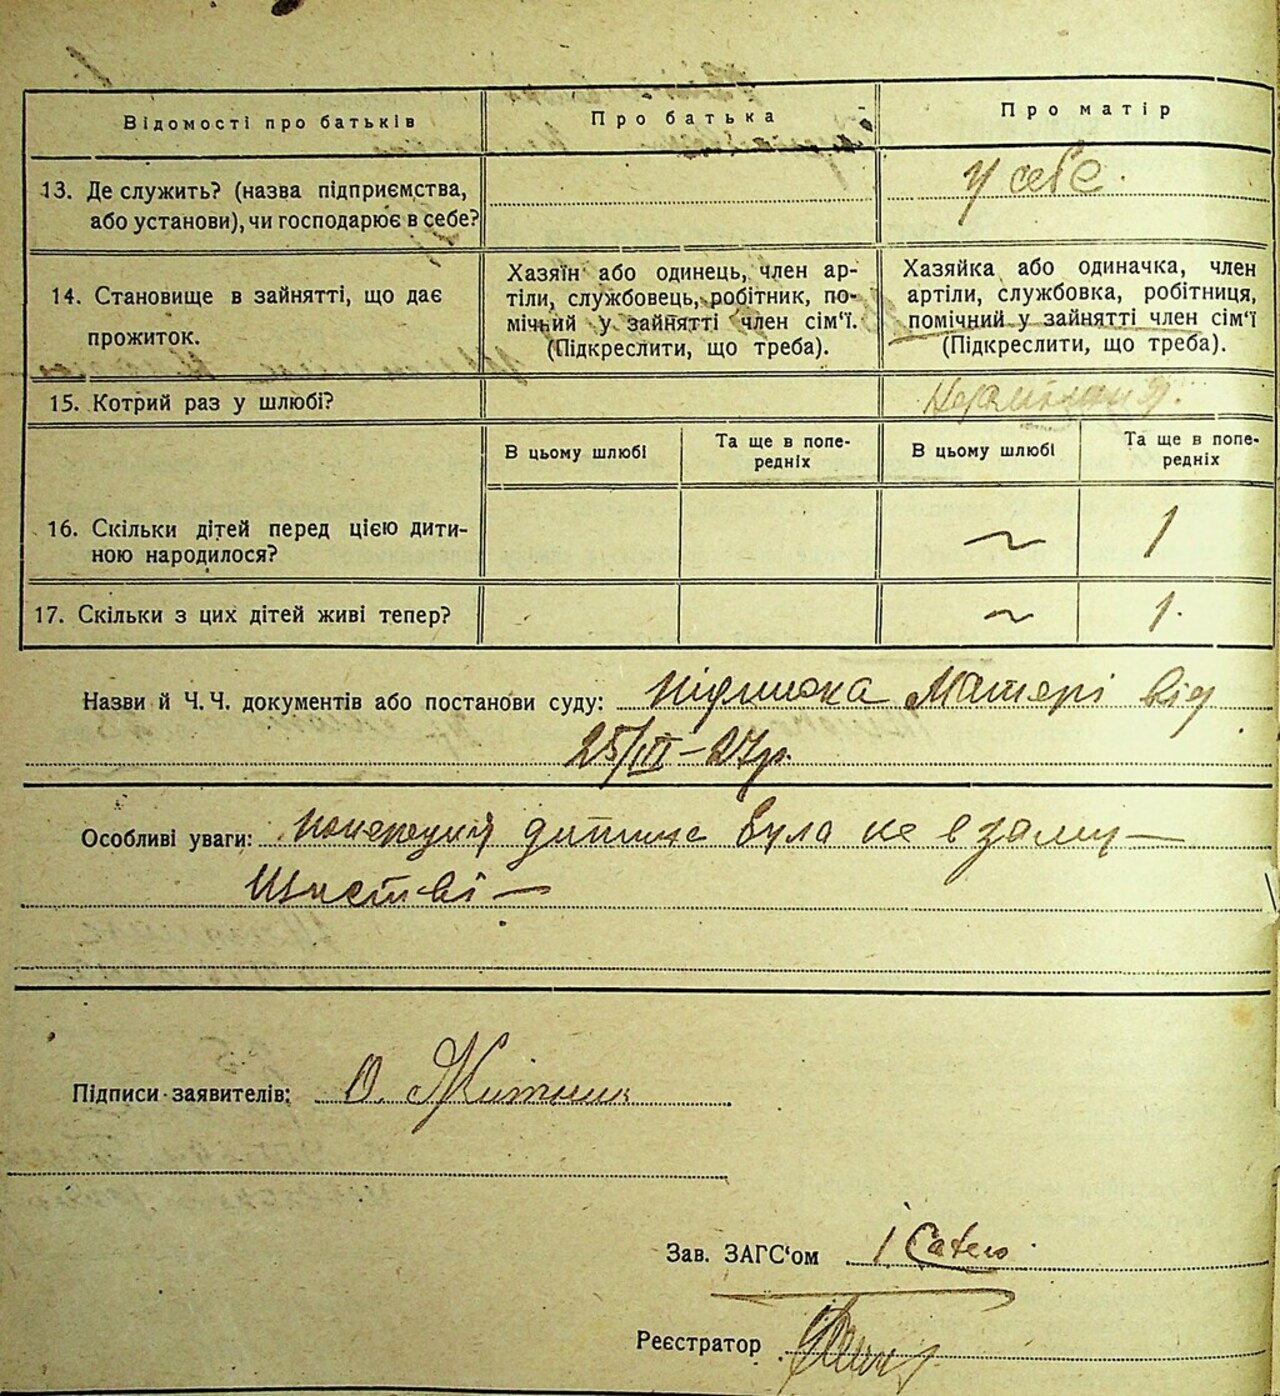 Відомості про батьків
Про батька
Про матір
13. Де служить? (назва підприємства,
або установи), чи господарює в себе?
у себе.
14. Становище в зайнятті, що дає
прожиток.
Хазяїн або одинець, член ар-
тіли, службовець, робітник, по-
мічний у зайнятті член сім‘ї.
(Підкреслити, що треба).
Хазяйка або одиначка, член
артіли, службовка, робітниця,
помічний у зайнятті член сім‘ї
(Підкреслити, що треба).
15. Котрий раз у шлюбі?
В цьому шлюбі
Та ще в попе-
редніх
В цьому шлюбі
Та ще в попе-
редніх
16. Скільки дітей перед цією дити-
ною народилося?
~
1
17. Скільки з цих дітей живі тепер?
~
1.
Назви й Ч. Ч. документів або постанови суду: підписка Матері від
25/III – 27р.
Особливі уваги: попередня дитина була не в заму–
жистві –
Підписи заявителів: О. Житник
Зав. ЗАГС‘ом
Реєстратор